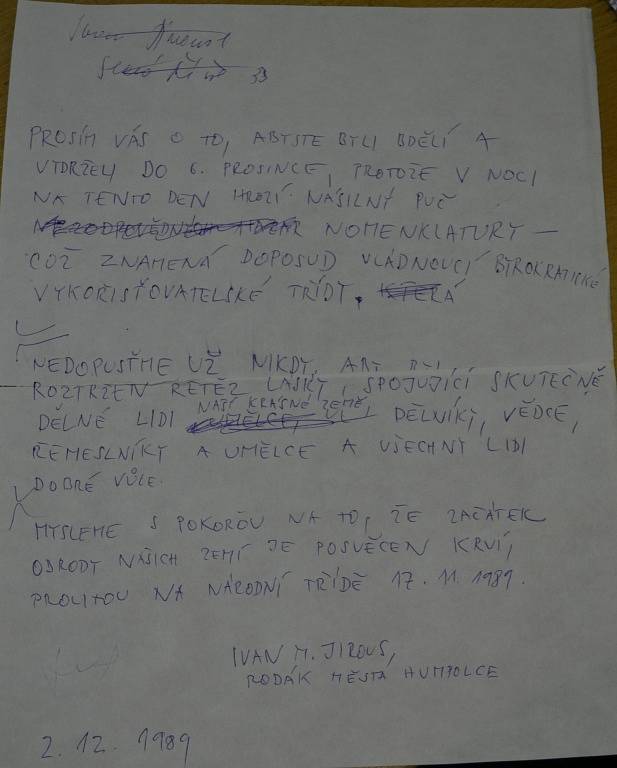 PROSÍM VÁS O TO, ABYSTE BYLI BDĚLÍ A
VYDRŽELI DO 6. PROSINCE, PROTOŽE V NOCI
NA TENTO DEN HROZÍ NÁSILNÝ PUČ
NOMENKLATURY —
COŽ ZNAMENÁ DOPOSUD VLÁDNOUCÍ BYROKRATICKÉ
VYKOŘISŤOVATELSKÉ TŘÍDY. KTERÁ
NEDOPUSŤME UŽ NIKDY, ABY BYL
ROZTRŽEN ŘETĚZ LÁSKY, SPOJUJÍCÍ SKUTEČNĚ
DĚLNÉ LIDI NAŠÍ KRÁSNÉ ZEMĚ, DĚLNÍKY, VĚDCE,
ŘEMESLNÍKY A UMĚLCE A VŠECHNY LIDI
DOBRÉ VŮLE.
MYSLEME S POKOROU NA TO, ŽE ZAČÁTEK
OBRODY NAŠICH ZEMÍ JE POSVĚCEN KRVÍ,
PROLITOU NA NÁRODNÍ TŘÍDĚ 17. 11. 1989.
IVAN M. JIROUS,
RODÁK MĚSTA HUMPOLCE
2. 12. 1989